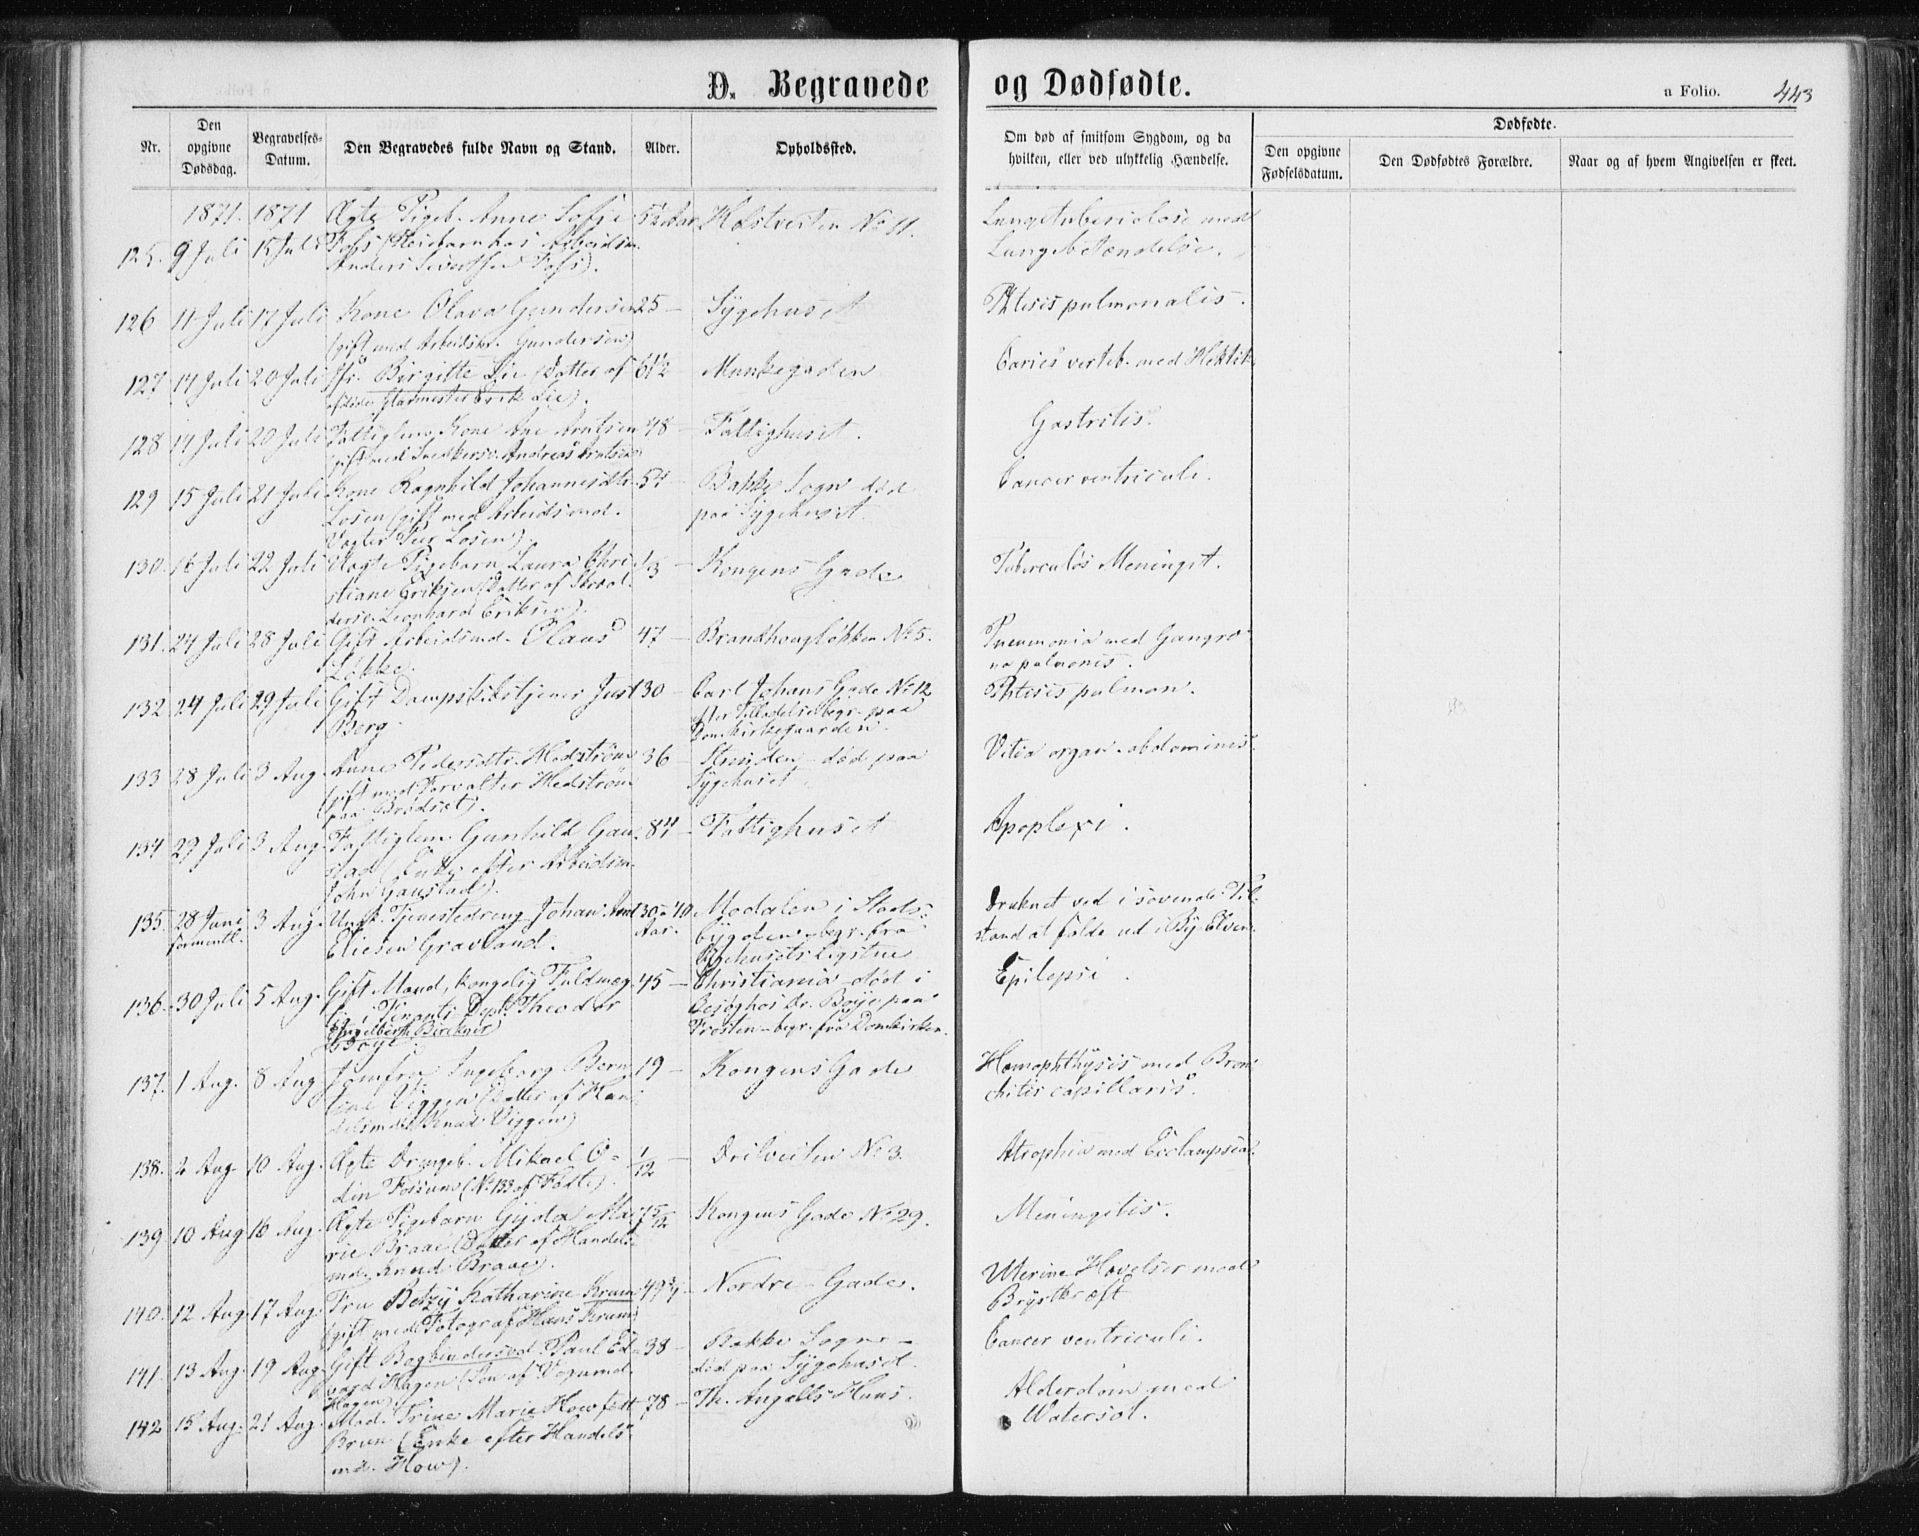 D. Begravede og Dødfødte.
a Folio. 443
Nr.
Den opgivne Dødsdag.
Begravelses-Datum.
Den Begravedes fulde Navn og Stand.
Alder.
Opholdssted.
Om død af smitsom Sygdom, og da hvilken, eller ved ulykkelig Hændelse.
Dødfødte.
Den opgivne Fødselsdatum.
Den Dødfødtes Forældre.
Naar og af hvem Angivelsen er skeet.
1871. 1871 Ægte Pigeb. Anne Sofie 5½ Aar No 11. Lungetuberculose med
125. 9 Juli 15 Juli Foss (Pleiebarn hos Arbeidsm. Lungebetændelse.
Anders Sivertsen Foss).
126 11 Juli 17 Juli Kone Olava Gundersen 25 — Sygehuset Phtisis pulmonalis.
(gift med Arbeidsm. Gundersen)
127 14 Juli 20 Juli Jfr. Birgitte Lie (Datter af 61½ Munkegaden Caries verteb. med Hektik
Glarmester Erik Lie).
128 14 Juli 20 Juli Fattiglem Kone Ane Arntsen 48 — Fattighuset. Gastritis.
(gift med Snedkersv. Andreas Arntsen)
129 15 Juli 21 Juli Kone Ragnhild Johannesdtr. 54 — Bakke Sogn død Cancer ventriculi.
Losen (gift med Arbeidsmd. paa Sygehuset.
Vogter Peer Losen)
130. 16 Juli 22 Juli Uægte Pigebarn Laura Chri- 1/3 — Kongens Gade Tuberculøs Meningit.
stiane Eriksen (Datter af
Leonhard Eriksen).
131. 24 Juli 28 Juli Gift Arbeidsmd. Olaus 47 — Brandhougløkken No 5. Pneumonia med Gangræ-
Løkke. na pulmonis.
132. 24 Juli 29 Juli Gift Dampskibstjener Just 30 — Carl Johans Gade No 12 Phtisis pulmon.
Berg efter Tilladelse begr. paa
Domkirkegaarden.
133 28 Juli 3 Aug. Anne Pedersdtr. Hedstrøm 36 — Strinden død paa Vitia organ. abdominis.
(gift med Forvalter Hedstrøm Sygehuset.
paa Brødset).
134 29 Juli 3 Aug. Fattiglem Gunhild Gau- 84 — Fattighuset Apoplexi.
stad (Enke efter Arbeidsm.
John Gaustad).
135. 28 Juni 3 Aug. Ungk. Tjenestedreng Johan 30 a 40 Modalen i Stads- Druknet ved i sovende Til-
formentl. Eliesen Gravland. Aar. bygden begr. fra stand at falde ud i By-Elven.
Sygehusets Ligstue
136. 30 Juli 5 Aug. Gift Mand, kongelig Fuldmæg- 45 — Christiania død i Epilepsi.
tig i Finants Dept. Theodor Besøg hos Dr. Boye paa
Engelberth Birckner Frosten — begr. fra Domkirken.
Boye.
137. 1 Aug. 8 Aug Jomfru Ingeborg Bern- 19 — Kongens Gade Hæmophthysis med Bron-
tine Viggen (Datter af Han- chitis capillaris.
delsmd. Knud Viggen)
138. 2 Aug. 10 Aug. Ægte Drengeb. Mikael O- 1/12 — Drilveiten No 3. Atrophia med Ecclampsia.
din (No 133 af Fødte).
139 10 Aug 16 Aug. Ægte Pigebarn Gyda Ma- Kongens Gade No 29. Meningitis.
rie Braae (Datter af Handels-
md. Knud Braae).
140. 12 Aug 17 Aug. Fru Betzy Katharine Krum 49¾ Nordre Gade. Uterine Hævelser med
(gift med Fotograf Hans Krum) Brystkræft
141. 13 Aug. 19 Aug Gift Bogbindersvd. Paul Ed- 38 — Bakke Sogn — Cancer ventriculi.
vard Hagen (Søn af Vognmd. død paa Sygehuset.
Hagen)
142 15 Aug. 21 Aug. Mad. Trine Marie How født 78 — Th. Angells Huus. Alderdom med
Brun (Enke efter Handels- Watersot.
md. How).